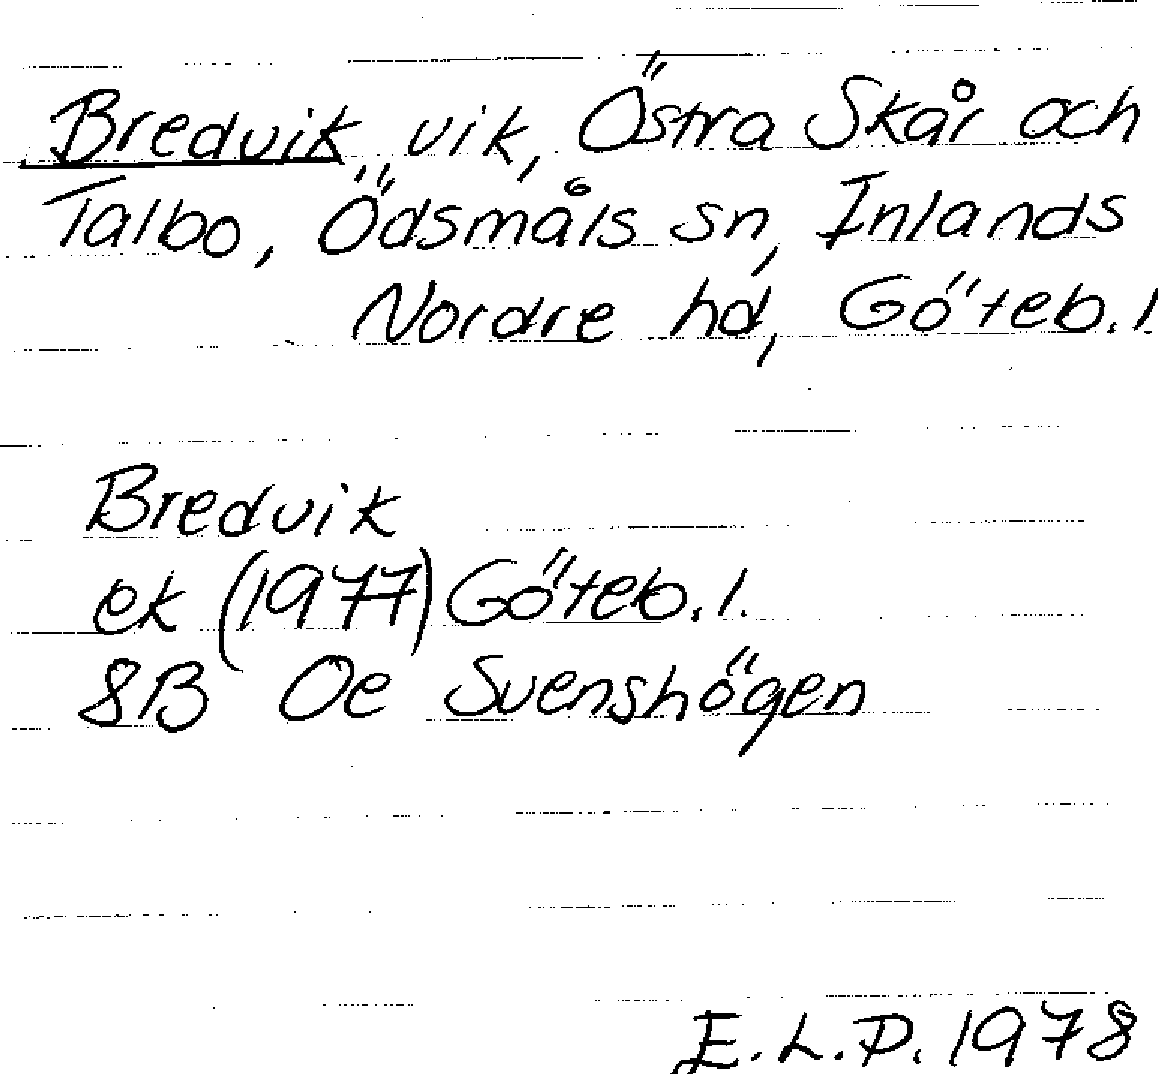 Bredvik, vik, Östra Skår och
Talbo, Ödsmåls sn, Inlands
Nordre hd, Göteb. l.
Bredvik
ek (1977) Göteb. l.
8B Oe Svenshögen
E.L.P. 1978